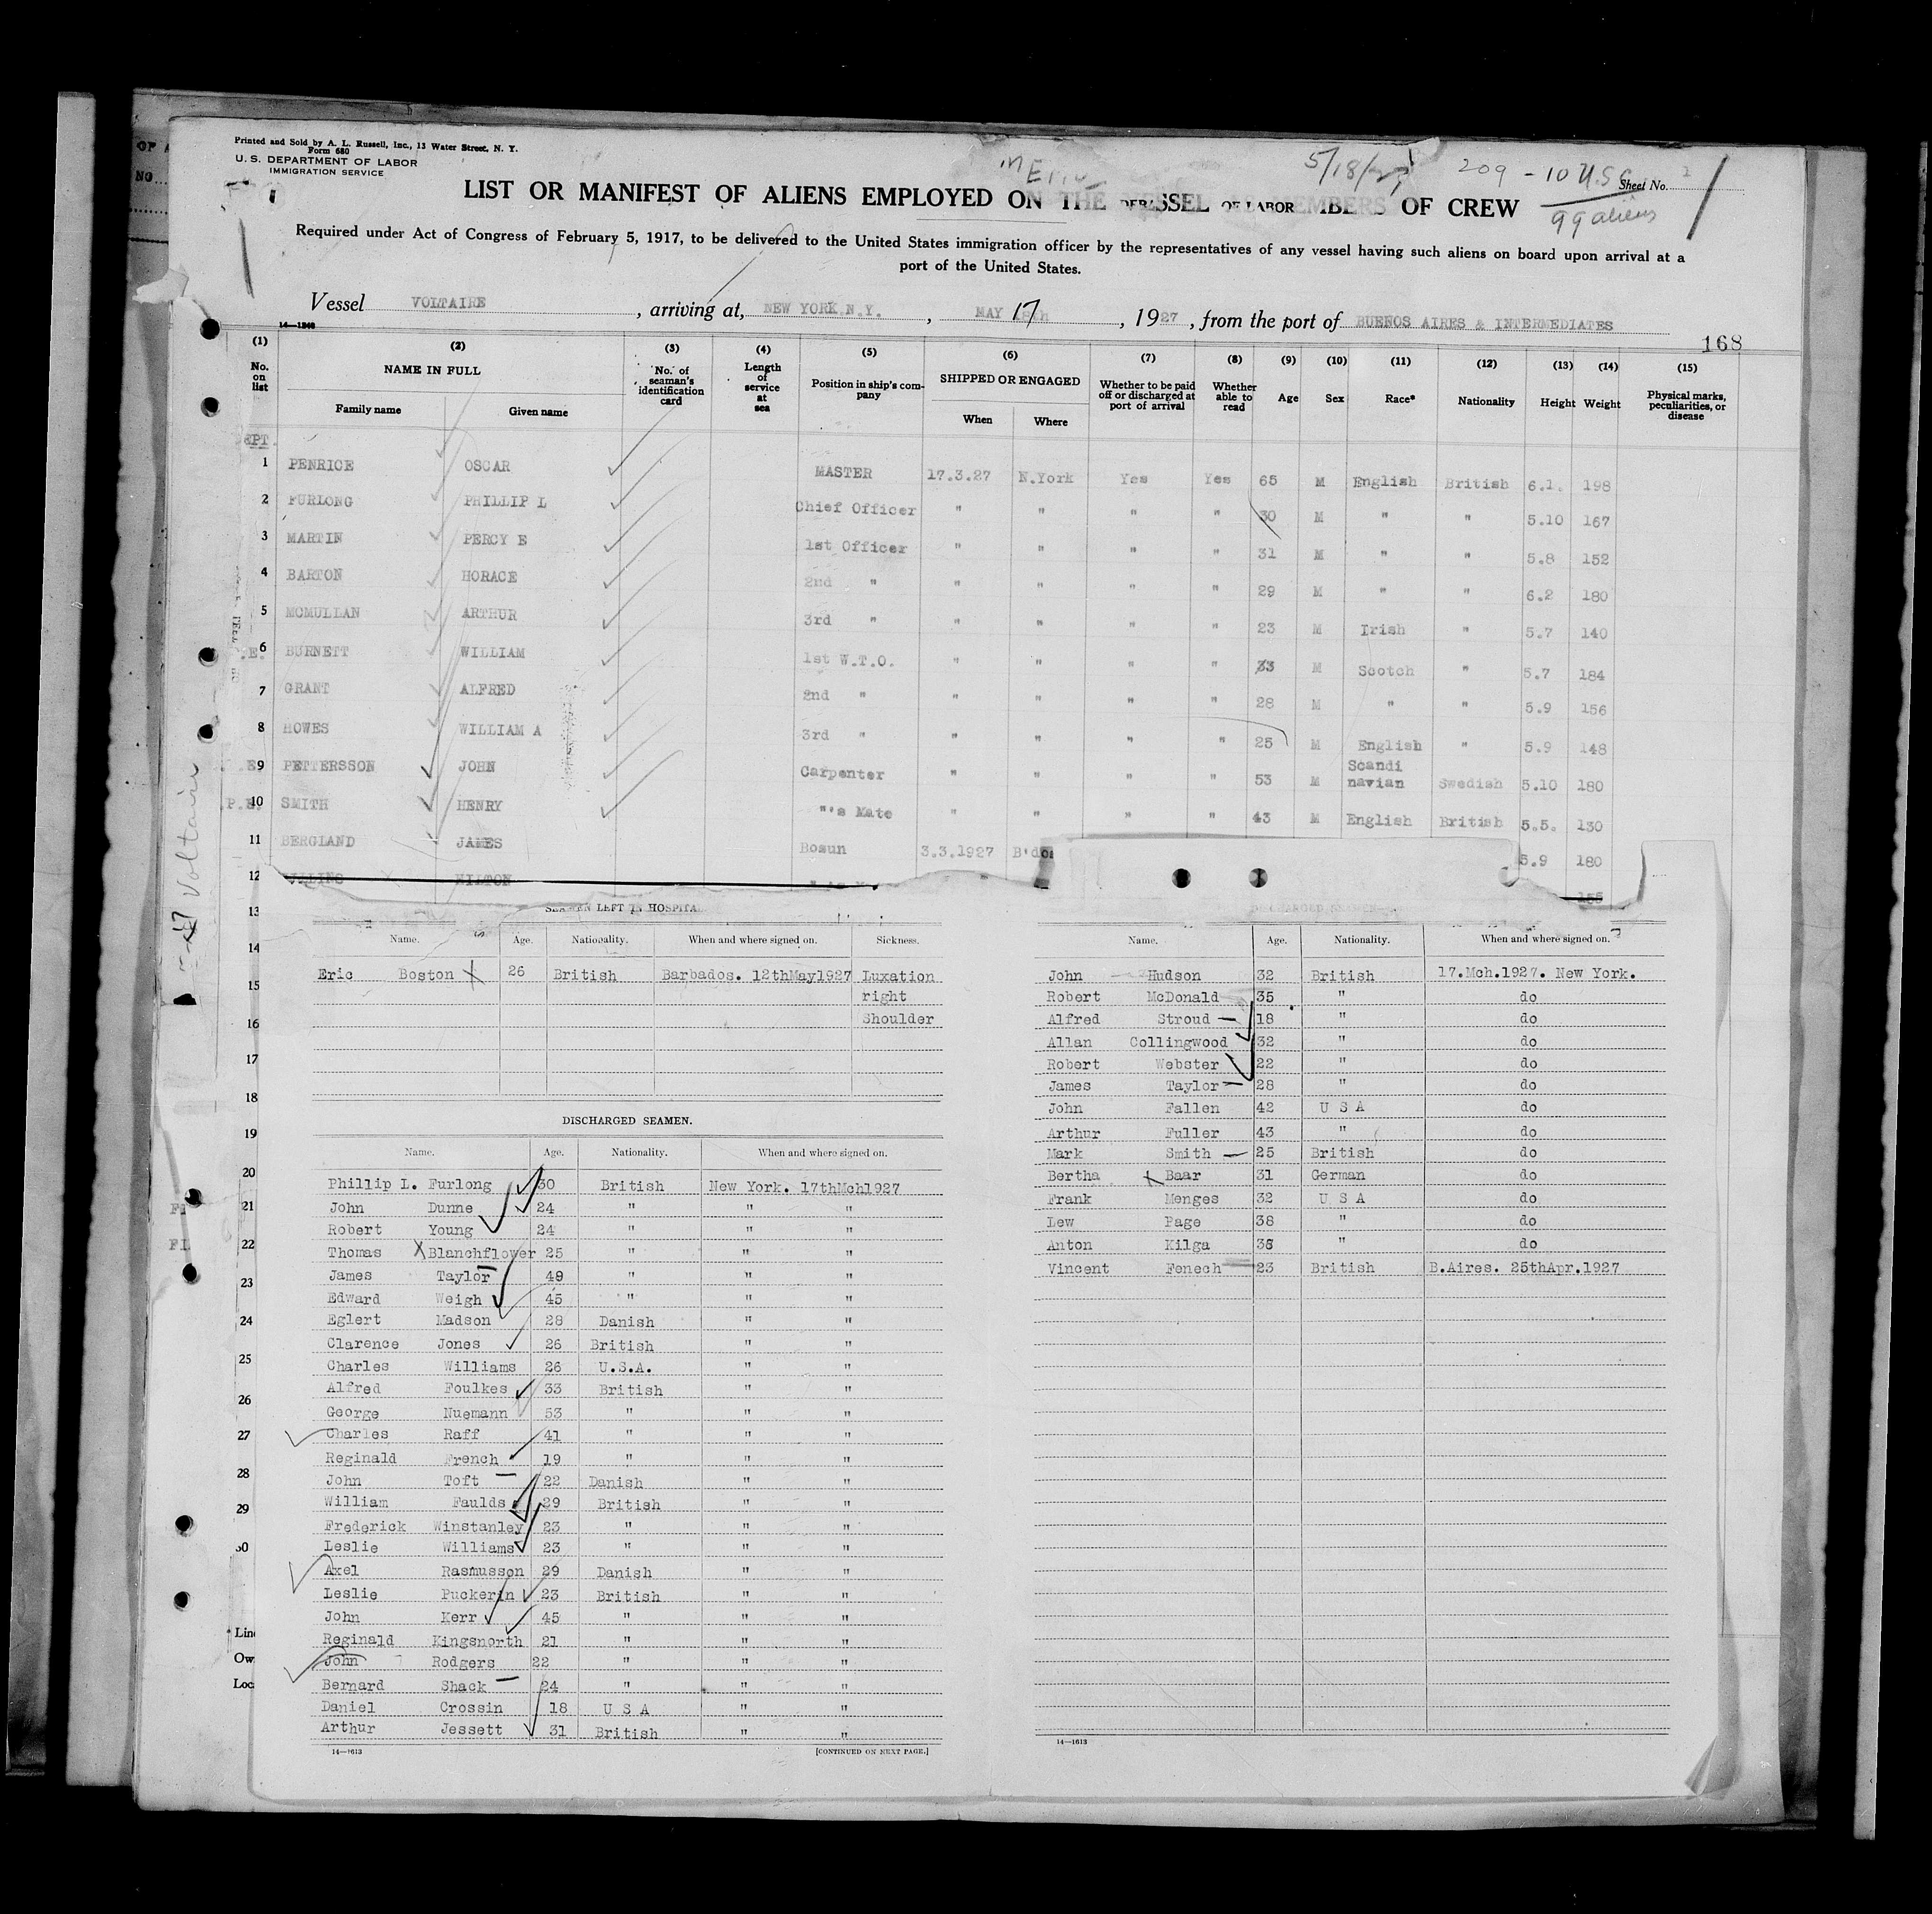 Printed and Sold by A. L. Russell, Inc., 13 Water Street, N. Y.
Form 680
U. S. DEPARTMENT OF LABOR
IMMIGRATION SERVICE
5/18/27
209 - 10 U.S.C.
99 aliens
Sheet No. 1
LIST OR MANIFEST OF ALIENS EMPLOYED ON THE VESSEL OF CREW
Required under Act of Congress of February 5, 1917, to be delivered to the United States immigration officer by the representatives of any vessel having such aliens on board upon arrival at a
port of the United States.
Vessel VOLTAIRE, arriving at, NEW YORK.N.Y., MAY 17, 1927, from the port of BUENOS AIRES & INTERMEDIATES
14—1240
168
(1) (2) (3) (4) (5) (6) (7) (8) (9) (10) (11) (12) (13) (14) (15)
No. on list NAME IN FULL Family name Given name No. of seaman's identification card Length of service at sea Position in ship's company SHIPPED OR ENGAGED When Where Whether to be paid off or discharged at port of arrival Whether able to read Age Sex Race* Nationality Height Weight Physical marks, peculiarities, or disease
1 PENRICE OSCAR MASTER 17.3.27 N.York Yes Yes 65 M English British 6.1. 198
2 FURLONG PHILLIP L Chief Officer " " " " 30 M " " 5.10 167
3 MARTIN PERCY E 1st Officer " " " " 31 M " " 5.8 152
4 BARTON HORACE 2nd " " " " " 29 M " " 6.2 180
5 MCMULLAN ARTHUR 3rd " " " " " 23 M Irish " 5.7 140
6 BURNETT WILLIAM 1st W.T.O. " " " " 33 M Scotch " 5.7 184
7 GRANT ALFRED 2nd " " " " " 28 M " " 5.9 156
8 HOWES WILLIAM A 3rd " " " " " 25 M English " 5.9 148
9 PETTERSSON JOHN Carpenter " " " " 53 M Scandi navian Swedish 5.10 180
10 SMITH HENRY "'s Mate " " " " 43 M English British 5.5. 130
11 BERGLAND JAMES Bosun 3.3.1927 B'do 5.9 180
12 HILTON
13
14
15
16
17
18
19
20
21
22
23
24
25
26
27
28
29
30
Voltaire
SEAMEN LEFT IN HOSPITA
Name. Age. Nationality. When and where signed on. Sickness.
Eric Boston 26 British Barbados. 12thMay1927 Luxation
right
Shoulder
DISCHARGED SEAMEN.
Name. Age. Nationality. When and where signed on.
Phillip L. Furlong 30 British New York. 17thMch1927
John Dunne 24 " " "
Robert Young 24 " " "
Thomas Blanchflower 25 " " "
James Taylor 49 " " "
Edward Weigh 45 " " "
Eglert Madson 28 Danish " "
Clarence Jones 26 British " "
Charles Williams 26 U.S.A. " "
Alfred Foulkes 33 British " "
George Nuemann 53 " " "
Charles Raff 41 " " "
Reginald French 19 " " "
John Toft 22 Danish " "
William Faulds 29 British " "
Frederick Winstanley 23 " " "
Leslie Williams 23 " " "
Axel Rasmusson 29 Danish " "
Leslie Puckerin 23 British " "
John Kerr 45 " " "
Reginald Kingsnorth 21 " " "
John Rodgers 22 " " "
Bernard Shack 24 " " "
Daniel Crossin 18 U S A " "
Arthur Jessett 31 British " "
14—1613 [CONTINUED ON NEXT PAGE.]
Name. Age. Nationality. When and where signed on.
John Hudson 32 British 17.Mch.1927. New York.
Robert McDonald 35 " do
Alfred Stroud 18 " do
Allan Collingwood 32 " do
Robert Webster 22 " do
James Taylor 28 " do
John Fallen 42 U S A do
Arthur Fuller 43 " do
Mark Smith 25 British do
Bertha Baar 31 German do
Frank Menges 32 U S A do
Lew Page 38 " do
Anton Kilga 38 " do
Vincent Fenech 23 British B.Aires. 25thApr.1927
14—1613